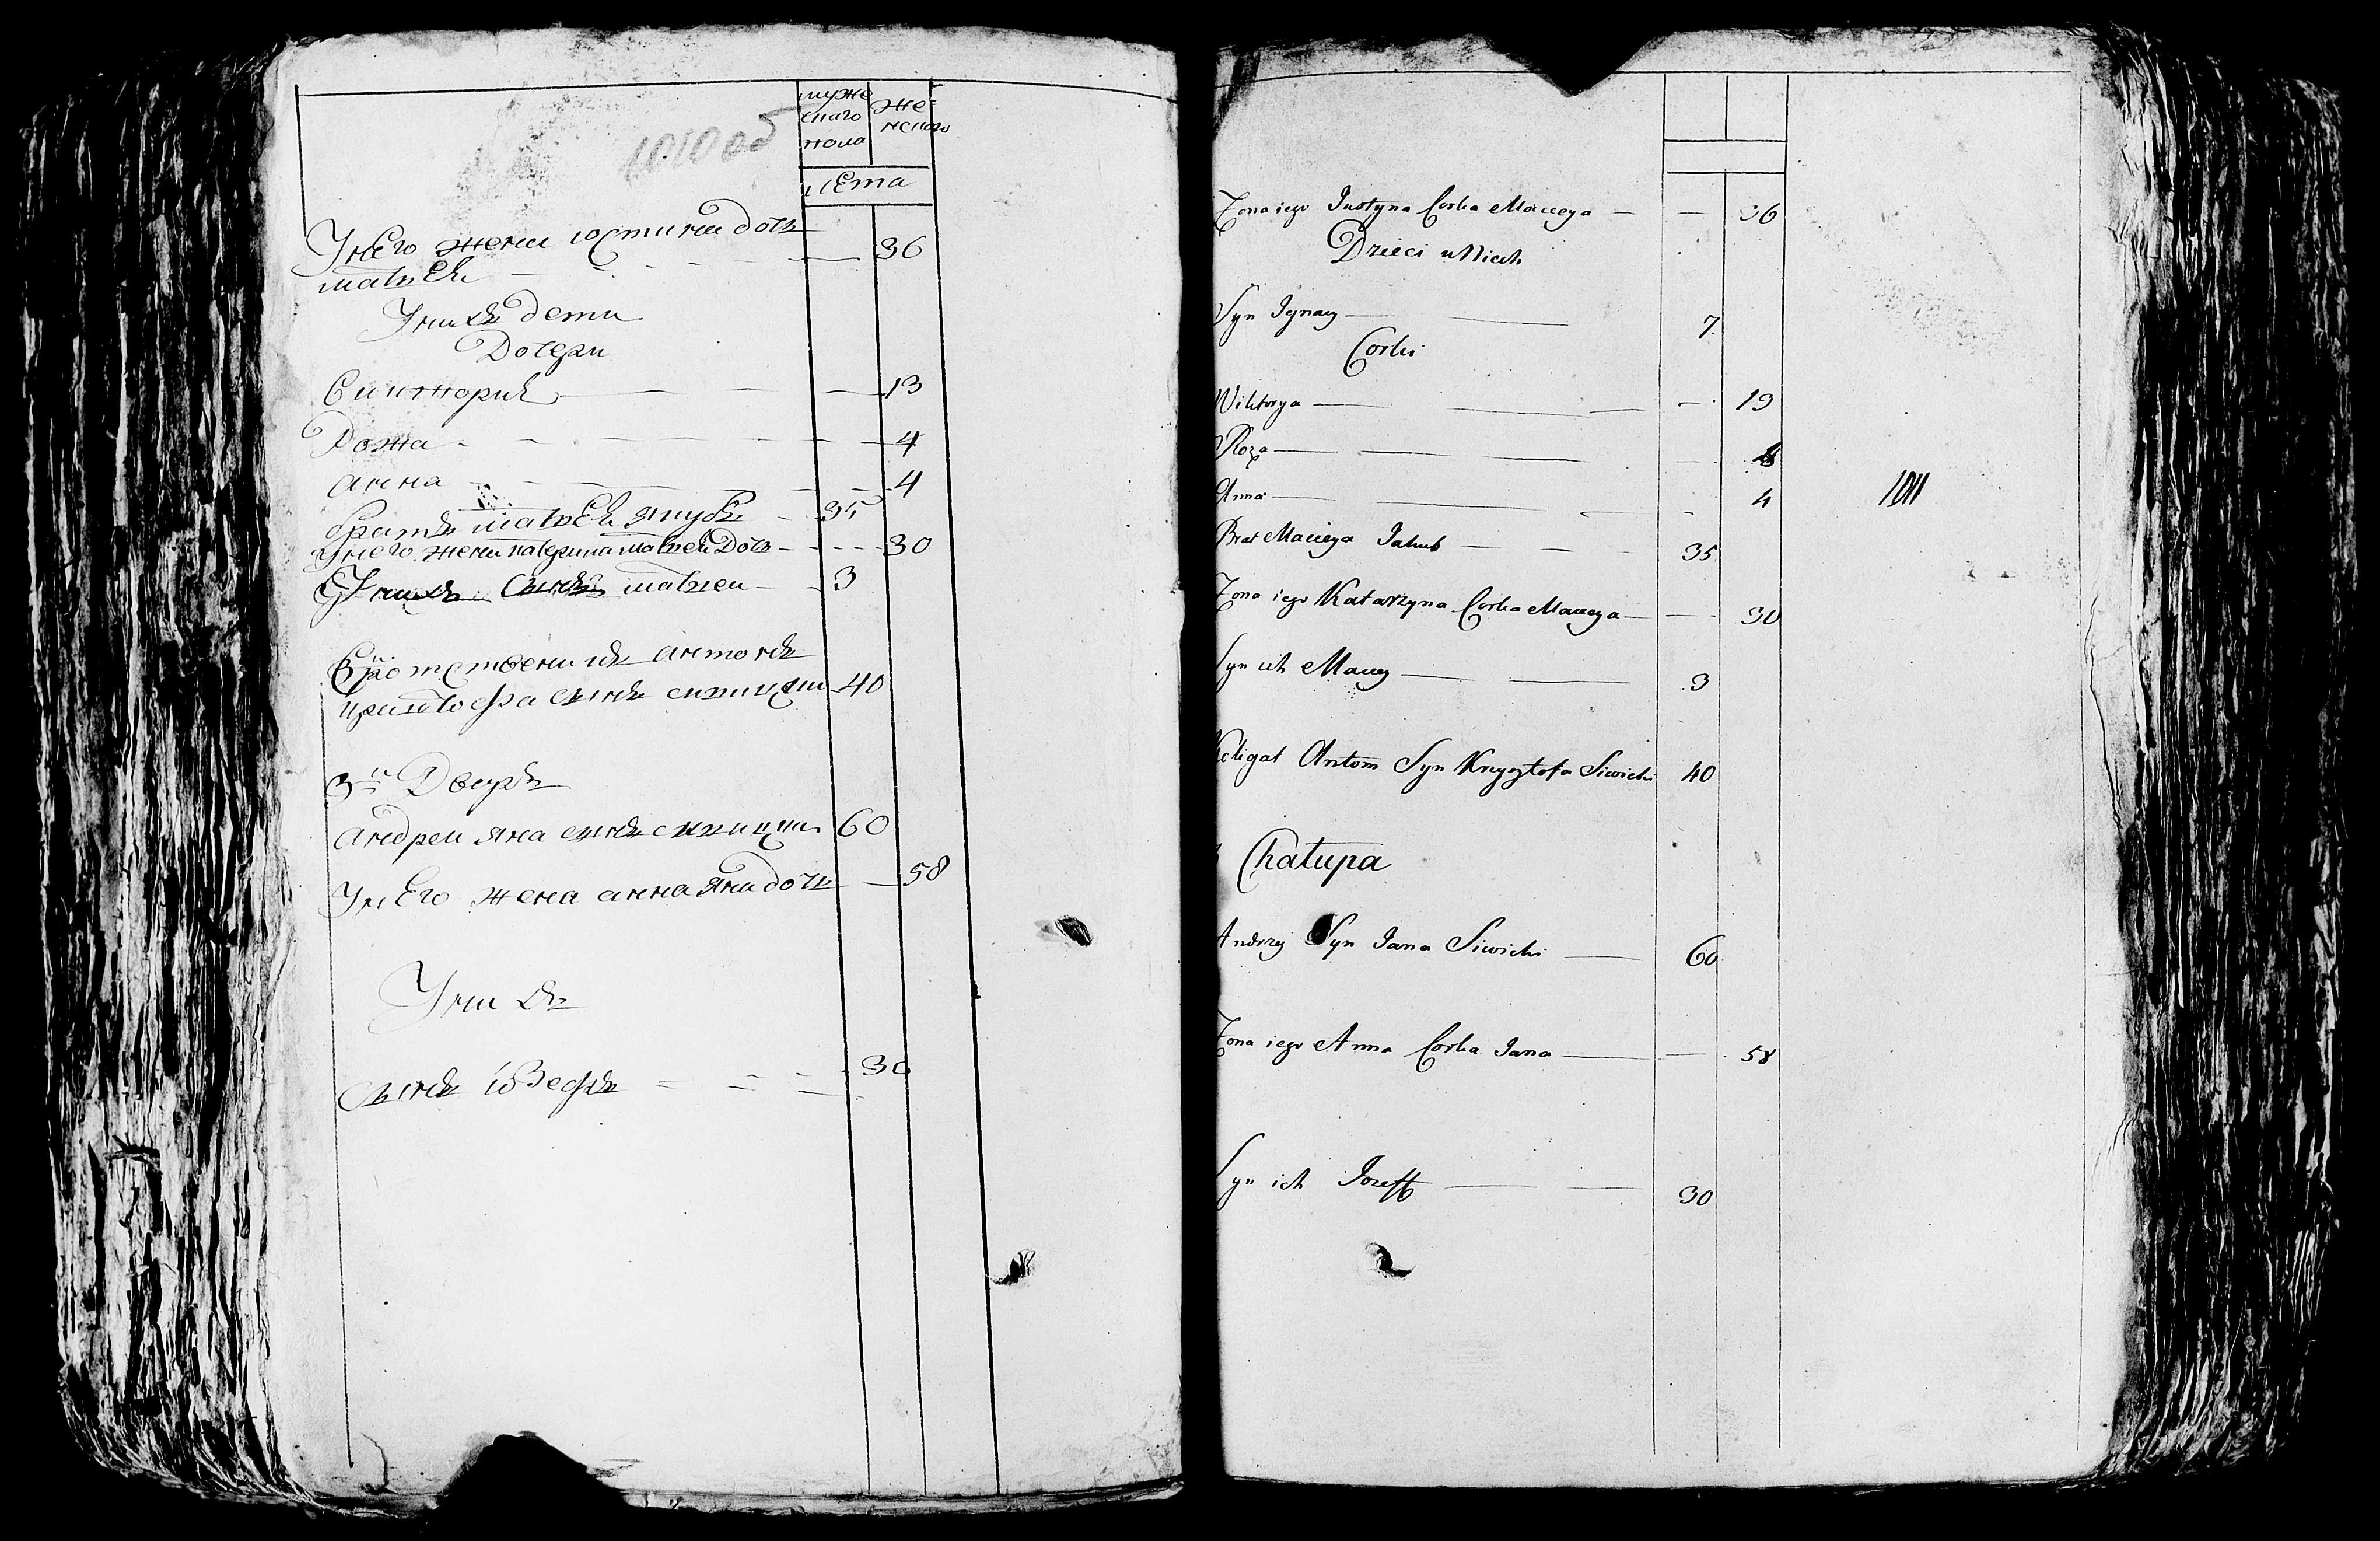 1010 об
муже
скаго
пола
же=
нскаго
лета
У него жена юстина дочь
матвея 36
У нихъ дети
Дочери
Викторiя 13
Рожа 4
анна 4
братъ матвея якубъ 35
У него жена катерина матвея Дочь 30
У нихъ сынъ матвеи 3
антонъ
криштофа сынъ сивицки 40
3й Дворъ
андреи яна сынъ сивицки 60
У него жена анна яна дочь 58
У нихъ
сынъ iозефъ 30
Zona iego Justyna Corka Macieya 36
Dzieci u Nich
Syn Ignacy 7
Corki
Wiktorya 13
Roza 4
Anna 4
Brat Macieya Jakub 35
Zona iego Katarzyna Corka Macieya 30
Syn ich Maciey 3
Koligat Antoni Syn Krzysztofa Siwicki 40
3 Chałupa
Andrzey Syn Jana Siwicki 60
Zona iego Anna Corka Jana 58
Syn ich Jozeff 30
1011